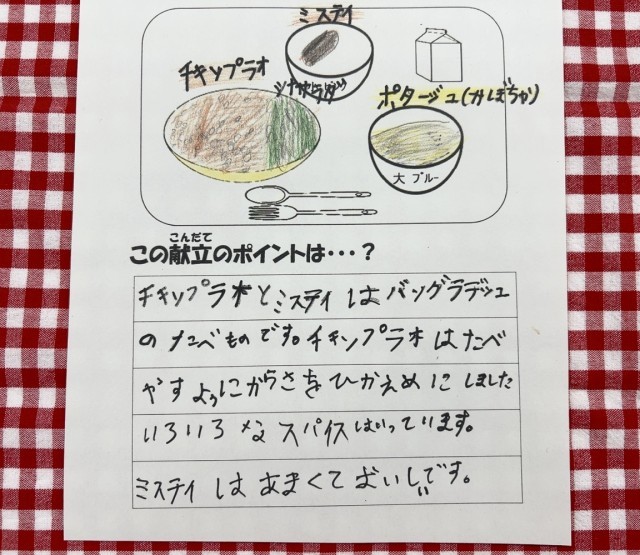 ミスティ
チキンプラオ
ツナサラダ
ポタージュ(かぼちゃ)
大 ブルー
こんだて
この献立のポイントは・・・?
チキンプラオとミスティはバングラデシュ
のたべものです。チキンプラオはたべ
やすようにからさをひかえめにしました
いろいろなスパイスはいっています。
ミスティはあまくておいしいです。